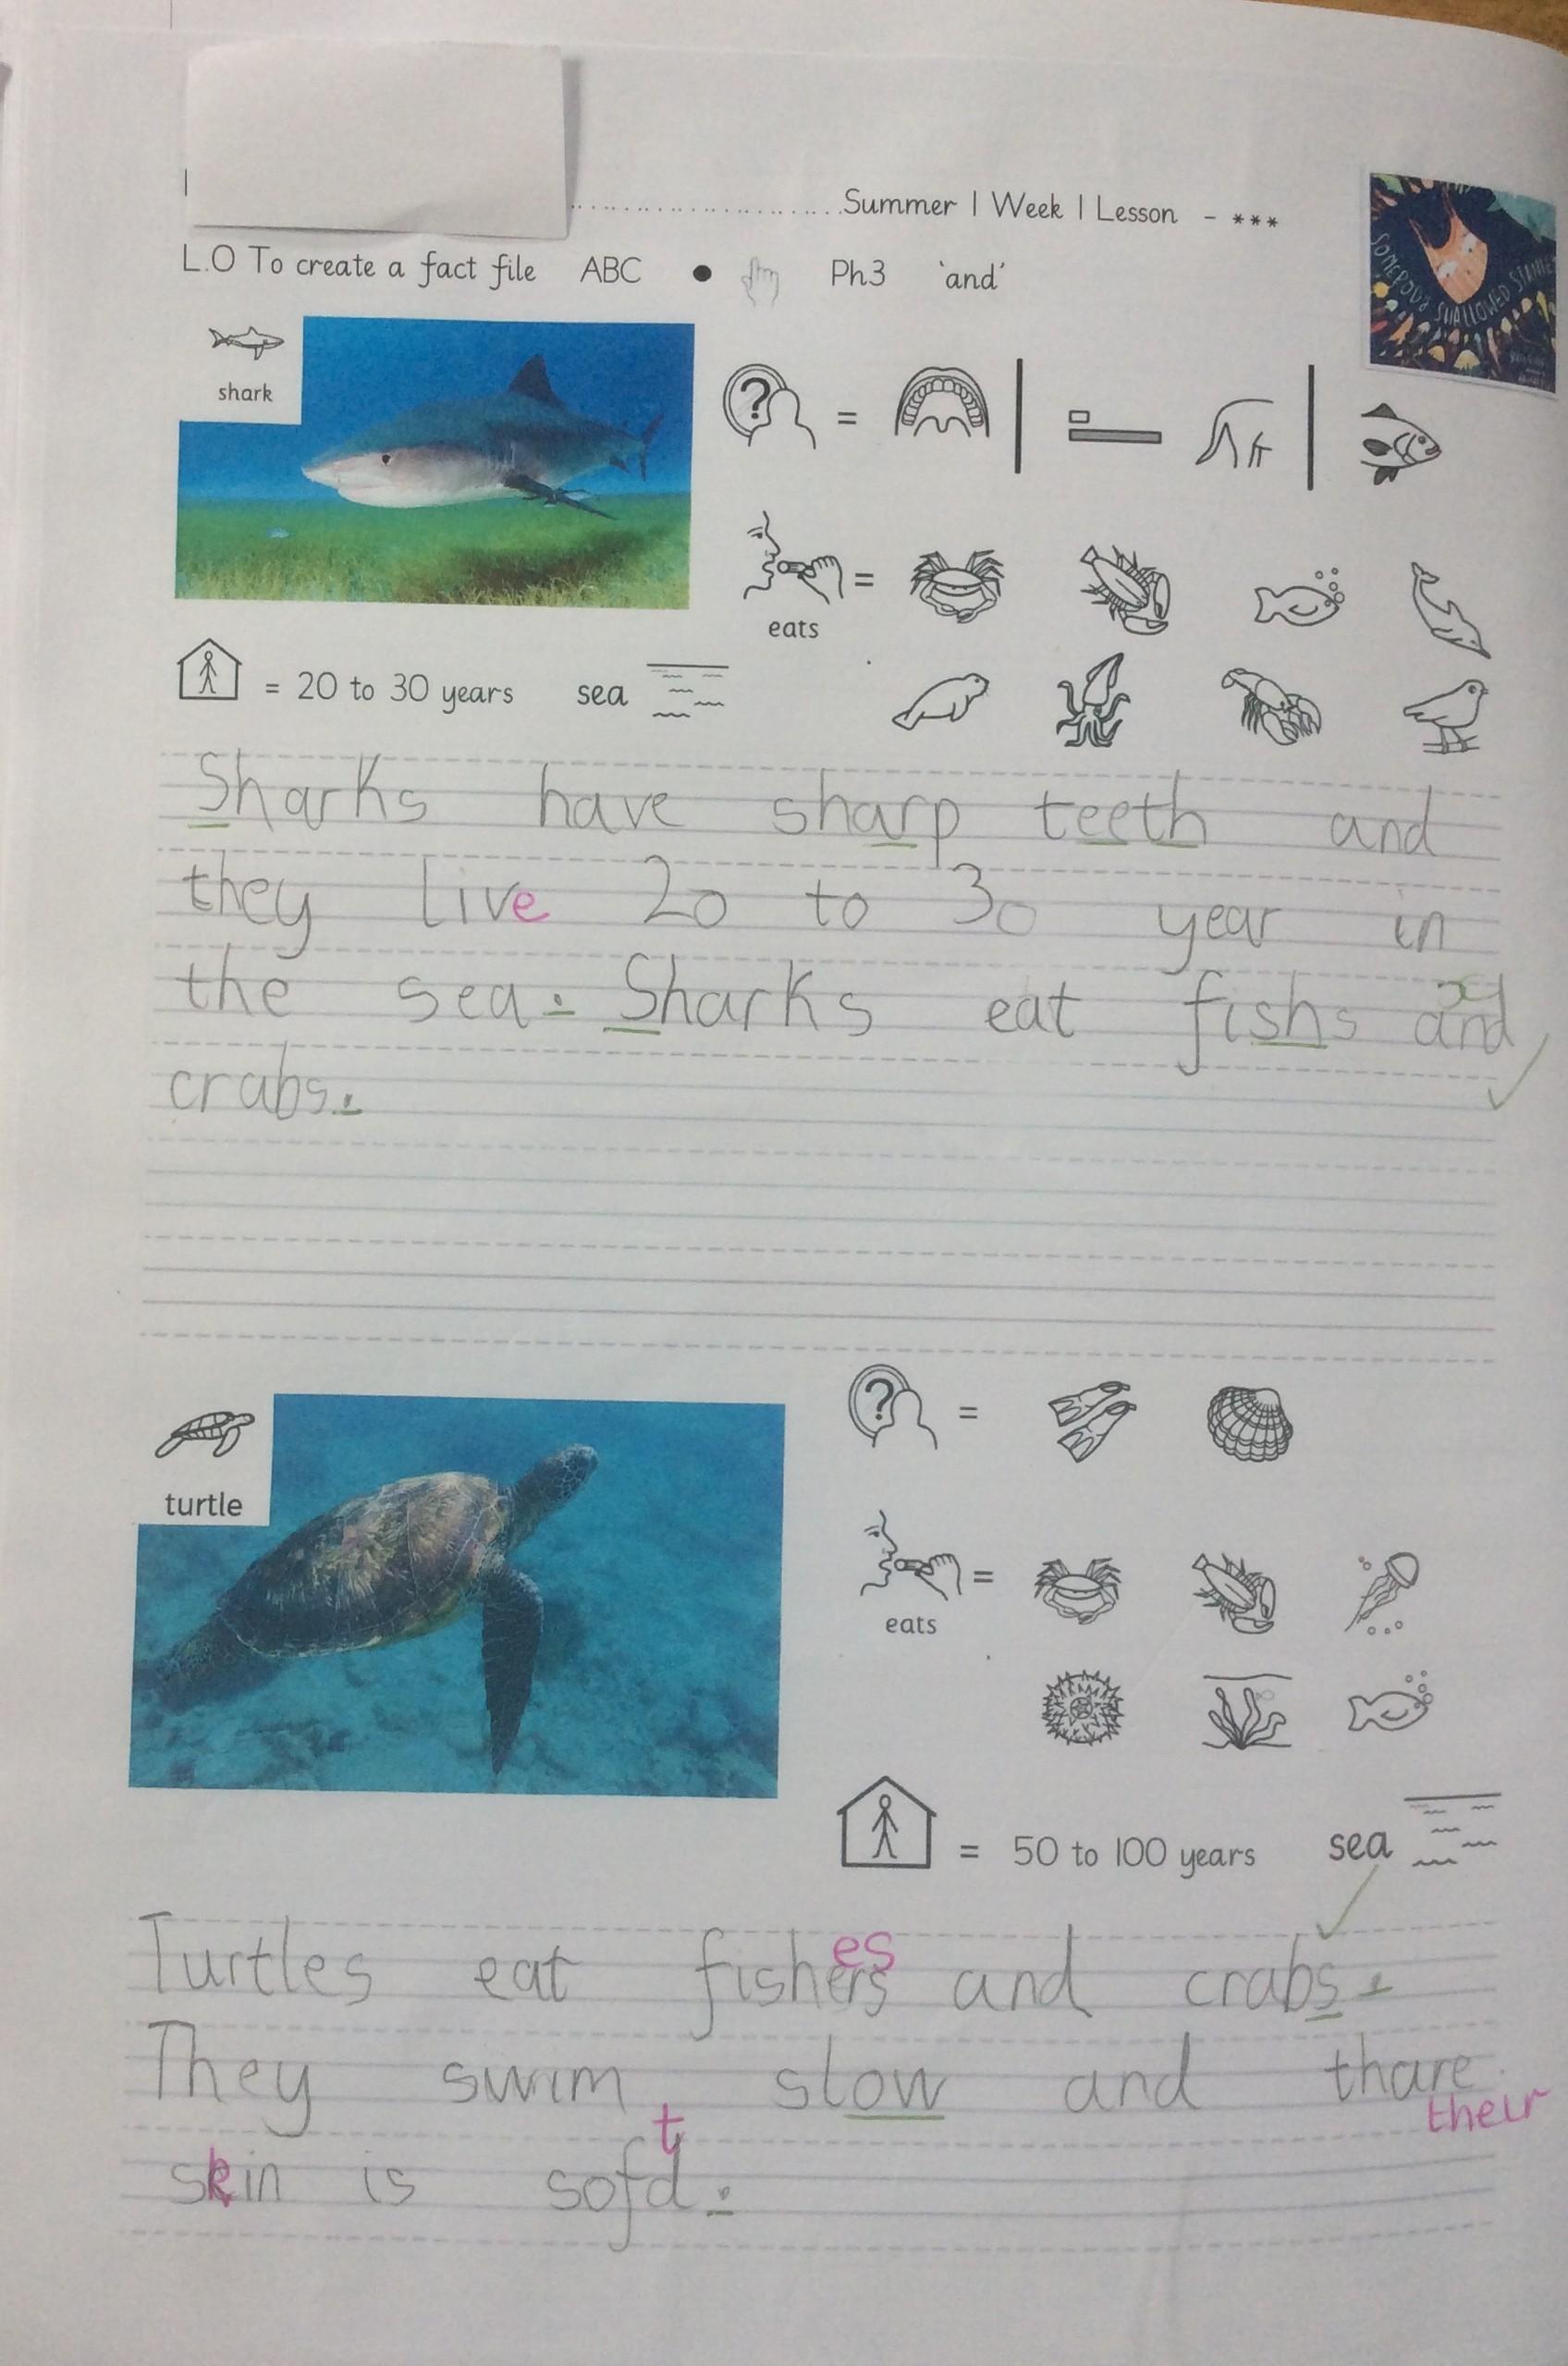 Summer 1 Week 1 Lesson - ***
L.O To create a fact file ABC • Ph3 'and'
SOMEBODY SWALLOWED STANLEY
shark
? =
=
eats
= 20 to 30 years sea
Sharks have sharp teeth and
they live 20 to 30 year in
the sea. Sharks eat fishs and
crabs.
turtle
? =
=
eats
= 50 to 100 years sea
es
Turtles eat fishers and crabs.
They swim slow and thare
their
t
skin is sofd.